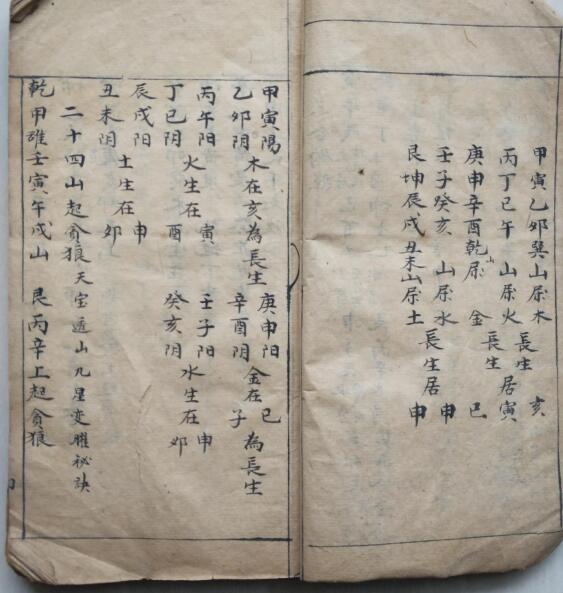 甲寅乙卯巽山属木 長生 亥
丙丁巳午 山属火 長生居寅
庚申辛酉乾山属 金 巳
壬子癸亥 山属水 長生居 申
艮坤辰戌丑未山属土 申
甲寅陽
乙卯阴 木在亥為長生
庚申阳
辛酉阴 金在巳子為長生
丙午阳
丁巳阴 火生在寅酉
壬子阳
癸亥阴 水生在申卯
辰戌阳
丑未阴 土生在申卯
二十四山起貪狼天宝遁山九星变曜秘訣
乾甲離壬寅午戌山 艮丙辛上起貪狼